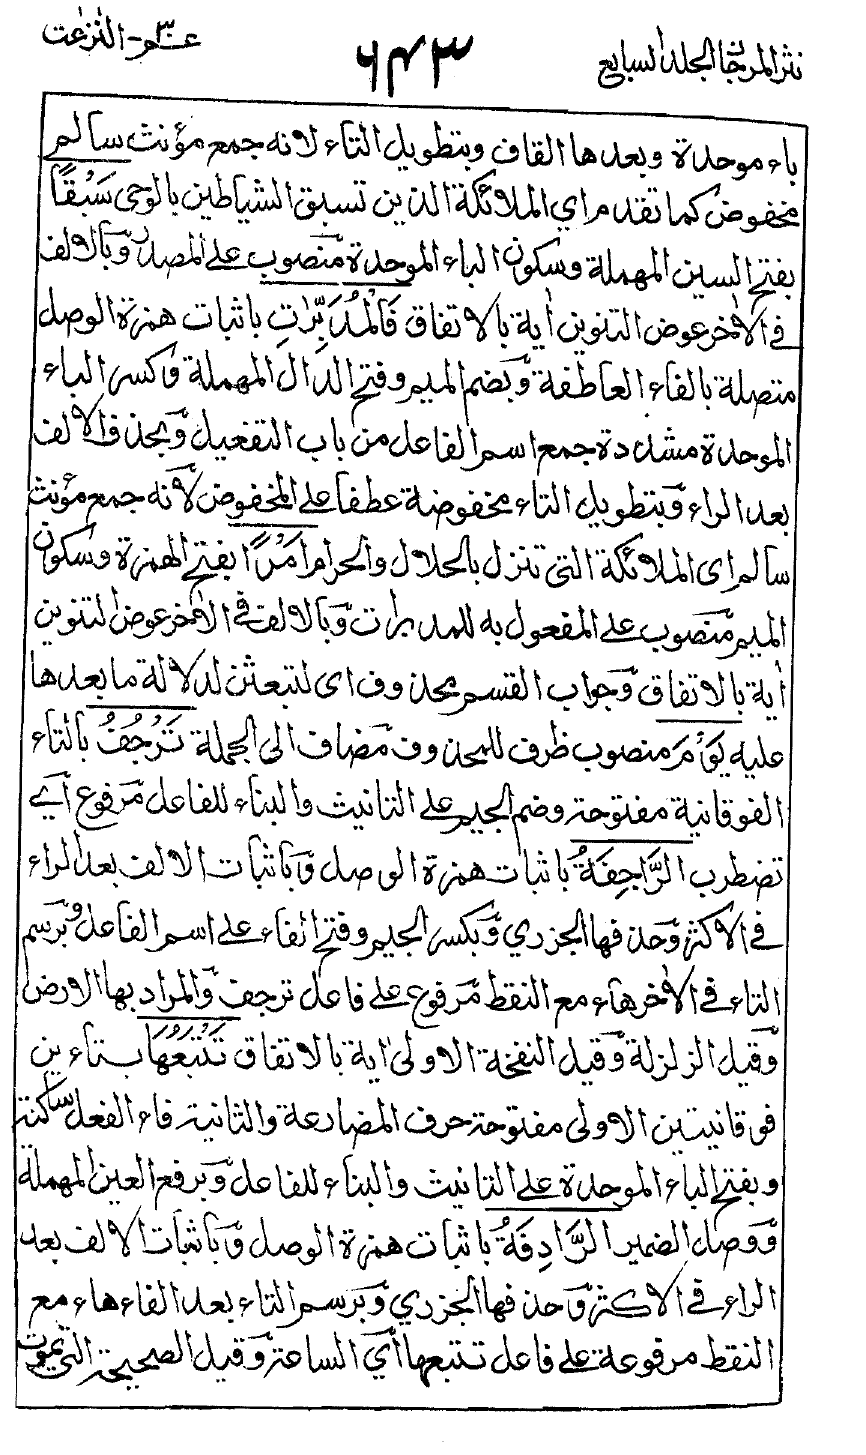 نثر المرجان المجلد السابع
۶۴۳
عم ۳۰ - النزعت
باء موحدة وبعدها القاف وبتطويل التاء لانه جمع مؤنث سالم
مخفوض كما تقدم اي الملائكة الذين تسبق الشياطين بالوحى سَبْقًا
بفتح السين المهملة وسكون الباء الموحدة منصوب على المصدر وبالالف
فى الاٰخر عوض التنوين اٰية بالاتفاق فَالْمُدَبِّرٰتِ باثبات همزة الوصل
متصلة بالفاء العاطفة وبضم الميم وفتح الدال المهملة وكسر الباء
الموحدة مشددة جمع اسم الفاعل من باب التفعيل وبحذف الالف
بعد الراء وبتطويل التاء مخفوضة عطفا على المخفوض لانه جمع مؤنث
سالم اى الملائكة التى تنزل بالحلال والحرام اَمْرًا بفتح الهمزة وسكون
الميم منصوب على المفعول به للمدبرات وبالالف فى الاٰخر عوض التنوين
اٰية بالاتفاق وجواب القسم محذوف اى لتبعثن لدلالة ما بعدها
عليه يَوْمَ منصوب ظرف للمحذوف مضاف الى الجملة تَرْجُفُ بالتاء
الفوقانية مفتوحة وضم الجيم على التانيث والبناء للفاعل مرفوع اَي
تضطرب الرَّاجِفَةُ باثبات همزة الوصل وباثبات الالف بعد الراء
فى الاكثر وحذفها الجزري وبكسر الجيم وفتح الفاء على اسم الفاعل وبرسم
التاء فى الاٰخر هاء مع النقط مرفوع على فاعل ترجف والمراد بها الارض
وقيل الزلزلة وقيل النفخة الاولىٰ اية بالاتفاق تَتْبَعُهَا بتاءين
فوقانيتين الاولى مفتوحة حرف المضارعة والثانية فاء الفعل ساكنة
وبفتح الباء الموحدة على التانيث والبناء للفاعل وبرفع العين المهملة
ووصل الضمير الرَّادِفَةُ باثبات همزة الوصل وباثبات الالف بعد
الراء فى الاكثر وحذفها الجزري وبرسم التاء بعد الفاء هاء مع
النقط مرفوعة على فاعل تتبعها اَي الساعة وقيل الصيحة التى تموت